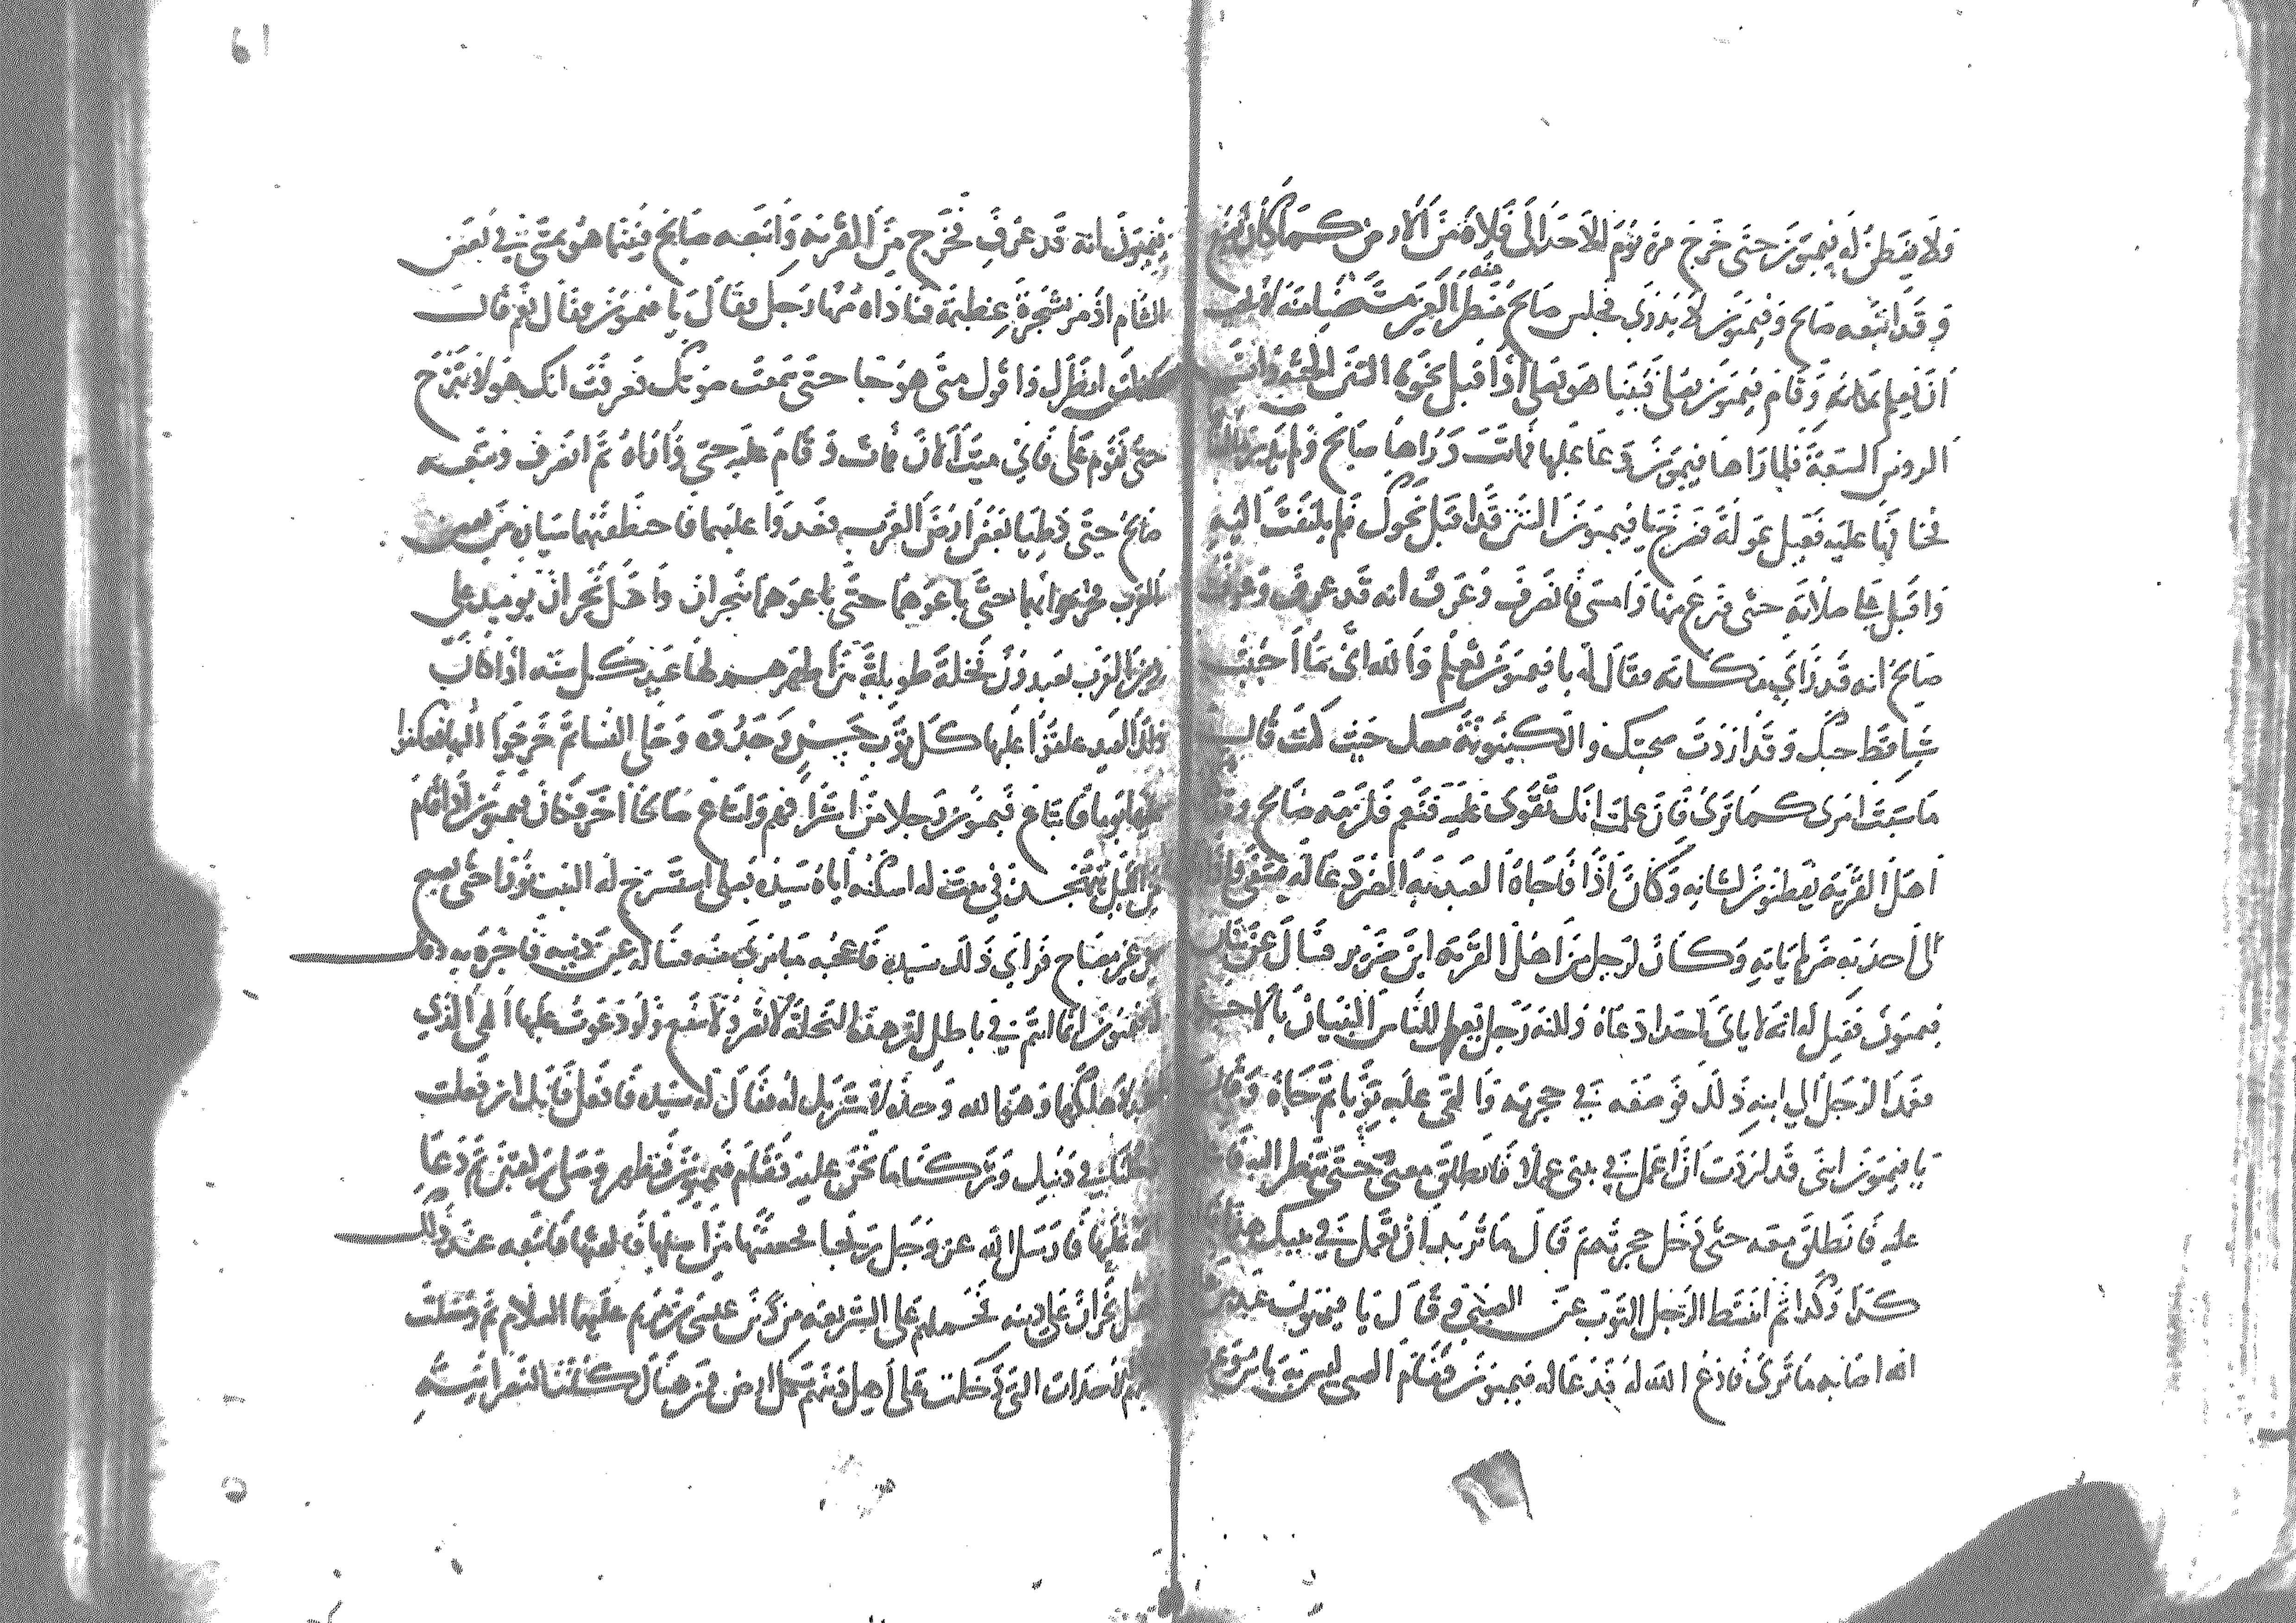 ولا يفطن له فيميون حتى خرج مرة يوم الاحد الى فلاة من الارض كما كان يصنع
وقد اتبعه صالح وفيميون لا يدري فجلس صالح منه منظر العين مستخفيا منه لا يحب
ان يعلم مكانه وقام فيميون يصلي فبينا هو يصلي اذ اقبل نحوه التنين الحية ذات
الروس السبعة فلما راها فيميون دعا عليها فماتت وراها صالح ولم يدر ما
فخافها عليه فعيل عوله فصرخ يا فيميون التنين قد اقبل نحوك فلم يلتفت اليه
واقبل على صلاته حتى فرغ منها وامسى فانصرف وعرف انه قد عرف وعرف
صالح انه قد راي مكانه فقال له يا فيميون تعلم والله اني ما احببت
شيا قط حبك وقد اردت صحبتك والكينونة معك حيث كنت قال
ما شيت امري كما ترى فان علمت انك تقوى عليه فنعم فلزمه صالح وقد
اهل القرية يفطنون لشانه وكان اذا فاجاه العبد به الضر دعا له فشفي واذا
الى احد به ضر لم ياته وكان لرجل من اهل القرية ابن ضرير فسال عن شان
فيميون فقيل له انه لا ياتي احدا دعاه ولكنه رجل يعمل للناس البنيان بالاجر
فعمد الرجل الى ابنه ذلك فوضعه في حجرته والقى عليه ثوبا ثم جاه وقال
يا فيميون اني قد اردت ان اعمل في بيتي عملا فانطلق معي حتى تنظر اليه
عليه فانطلق معه حتى دخل حجرته ثم قال ما تريد ان تعمل في بيتك هذا
كذا وكذا ثم انتشط الرجل الثوب عن الصبي وقال يا فيميون عبد من
انه اصابه ما ترى فادع الله له فدعا له فيميون فقام الصبي ليس به باس
فيميون انه قد عرف فخرج من القرية واتبعه صالح فبينما هو يمشي في بعض
الشام اذ مر بشجرة عظيمة فناداه منها رجل فقال يا فيميون فقال نعم قال
انتظرك واقول متى هو جا حتى سمعت صوتك فعرفت انك هو لا تبرح
حتى تقوم علي فاني ميت الان فمات وقام عليه حتى واراه ثم انصرف وتبعه
صالح حتى وطيا بعض ارض العرب فعدوا عليهما فاختطفتهما سيارة من بعض
العرب فخرجوا بهما حتى باعوهما حتى باعوهما بنجران واهل نجران يوميذ على
دين العرب يعبدون نخلة طويلة بين اظهرهم لها عيد كل سنة اذا كان
ذلك العيد علقوا عليها كل ثوب حسن وجدوه وحلي النسا ثم خرجوا اليها فعكفوا
عليها يوما فابتاع فيميون رجل من اشرافهم وابتاع صالحا اخر فكان فيميون اذا قام
من الليل يتهجد في بيت له اسكنه اياه سيده يصلي استسرج له البيت نورا حتى يصبح
من غير مصباح فراي ذلك سيده فاعجبه ما يرى منه فساله عن دينه فاخبره به وقال
له فيميون انما انتم في باطل ان هذه النخلة لا تضر ولا تنفع ولو دعوت عليها الهي الذي
اعبد لاهلكها وهو الله وحده لا شريك له فقال له سيده فافعل فانك ان فعلت
دخلنا في دينك وتركنا ما نحن عليه فقام فيميون فتطهر وصلى ركعتين ثم دعا
الله عليها فارسل الله عز وجل ريحا فجعفتها من اصلها فالقتها فاتبعه عند ذلك
اهل نجران على دينه فحملهم على الشريعة من دين عيسى بن مريم عليهما السلام ثم دخلت
عليهم الاحداث التي دخلت على اهل دينهم بكل ارض فمن هنالك كانت النصرانية